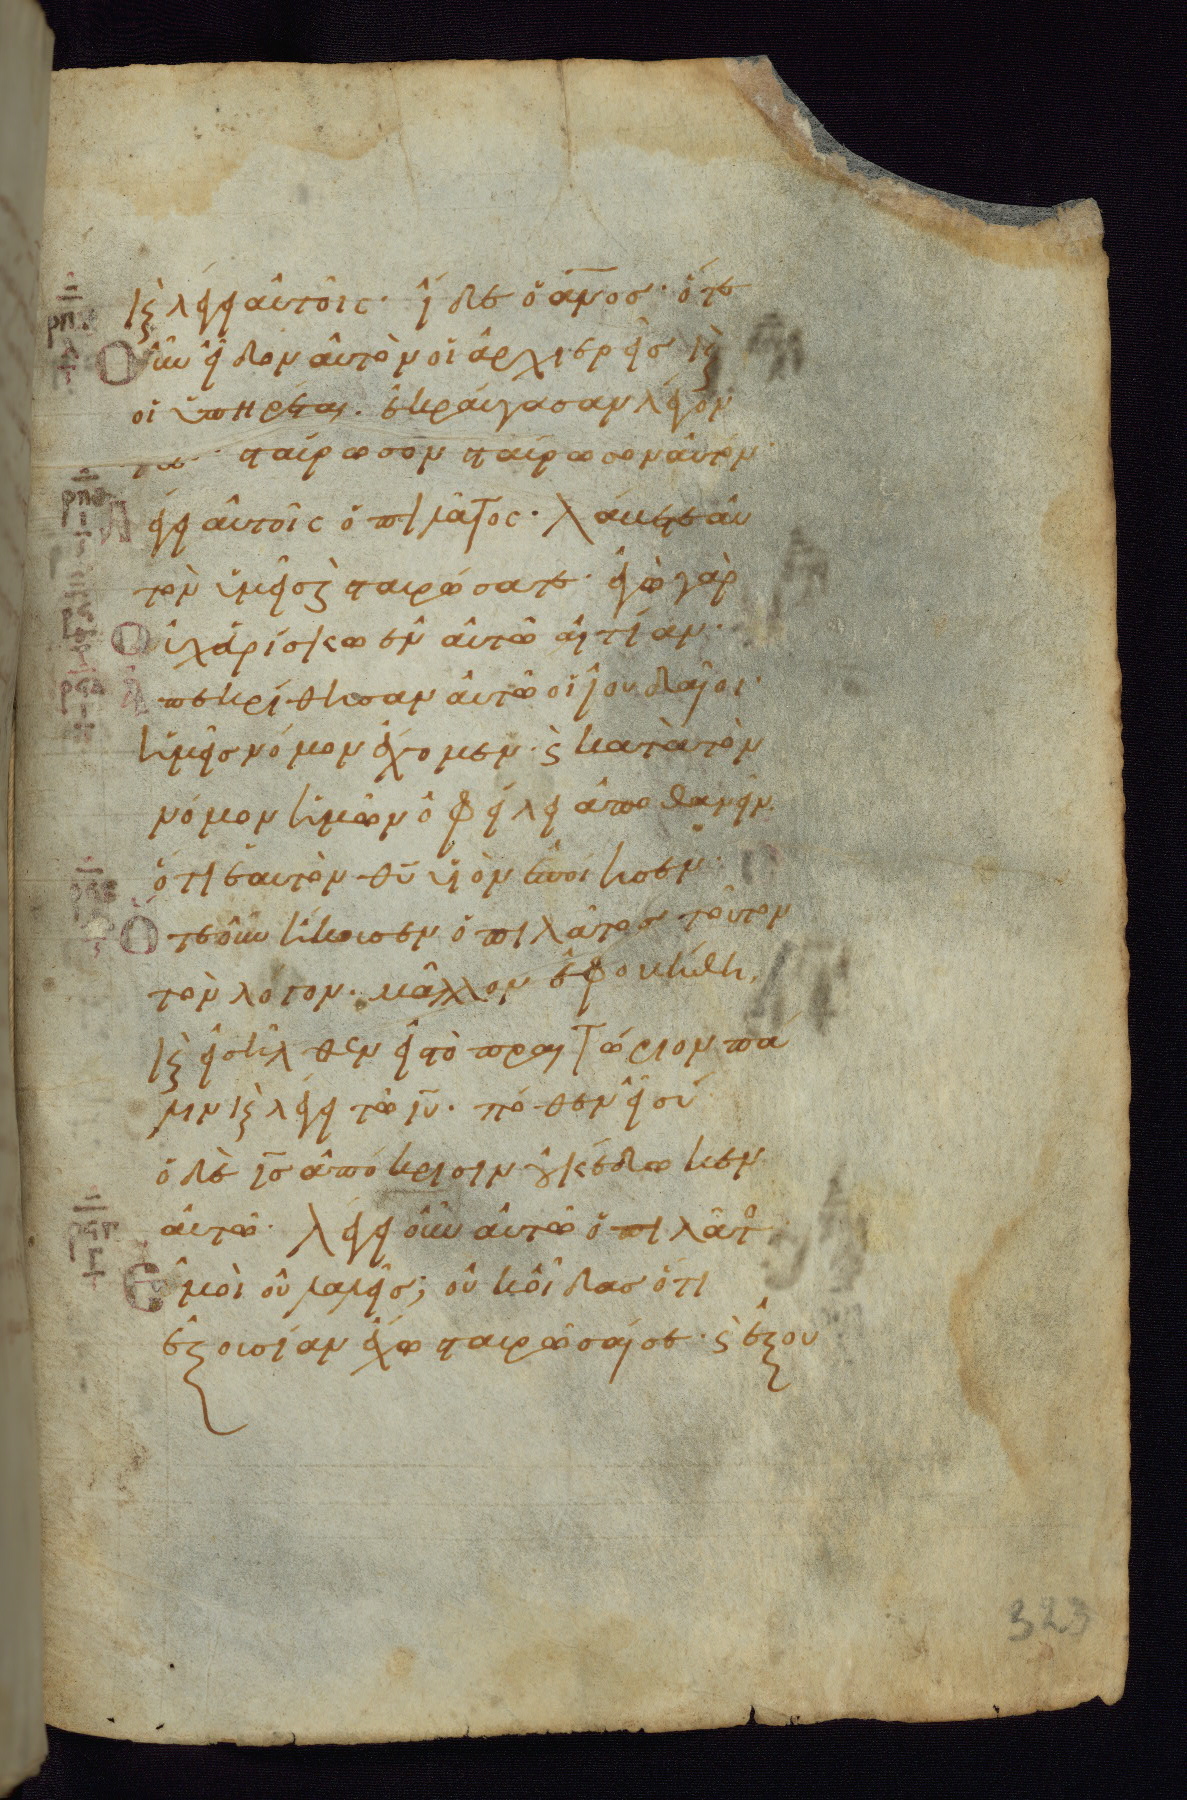 κ(αὶ) λέγει αὐτοῖς· ἴδε ὁ ἄν̅ο̅σ· ὅτε
Οὖν εἶδον αὐτὸν οἱ ἀρχιερεῖσ κ(αὶ)
οἱ ὑπηρέται. ἐκραύγασαν λέγον
τεσ· σταύρωσον σταύρωσον αὐτόν·
Λέγει αὐτοῖς ὁ πιλάτος· λάβετε αὐ
τὸν ὑμεῖσ κ(αὶ) σταυρώσατε· ἐγὼ γὰρ
Οὐχ εὑρίσκω ἐν αὐτῶ αἰτίαν·
Ἀπεκρίθησαν αὐτῶ οἱ ἰουδαῖοι·
ἡμεῖσ νόμον ἔχομεν· κ(αὶ) κατὰ τὸν
νόμον ἡμῶν ὀφείλει ἀποθανεῖν
ὅτι ἑαυτὸν θ̅υ̅ υἱὸν ἐποίησεν·
Ὅτε οὖν ἤκουσεν ὁ πιλάτοσ τοῦτον
τὸν λόγον· μᾶλλον ἐφοβήθη,
κ(αὶ) εἰσῆλθεν εἰσ τὸ πραιτώριον πά
λιν κ(αὶ) λέγει τῶ ι̅υ̅· πόθεν εἶ σύ
ὁ δὲ ι̅σ̅ ἀπόκρισιν οὐκ ἔδωκεν
αὐτῶ· λέγει οὖν αὐτῶ ὁ πιλᾶτο
Ἐμοὶ οὐ λαλεῖσ; οὐκ οἶδασ ὅτι
ἐξουσίαν ἔχω σταυρῶσαί σε· κ(αὶ) ἐξου
323